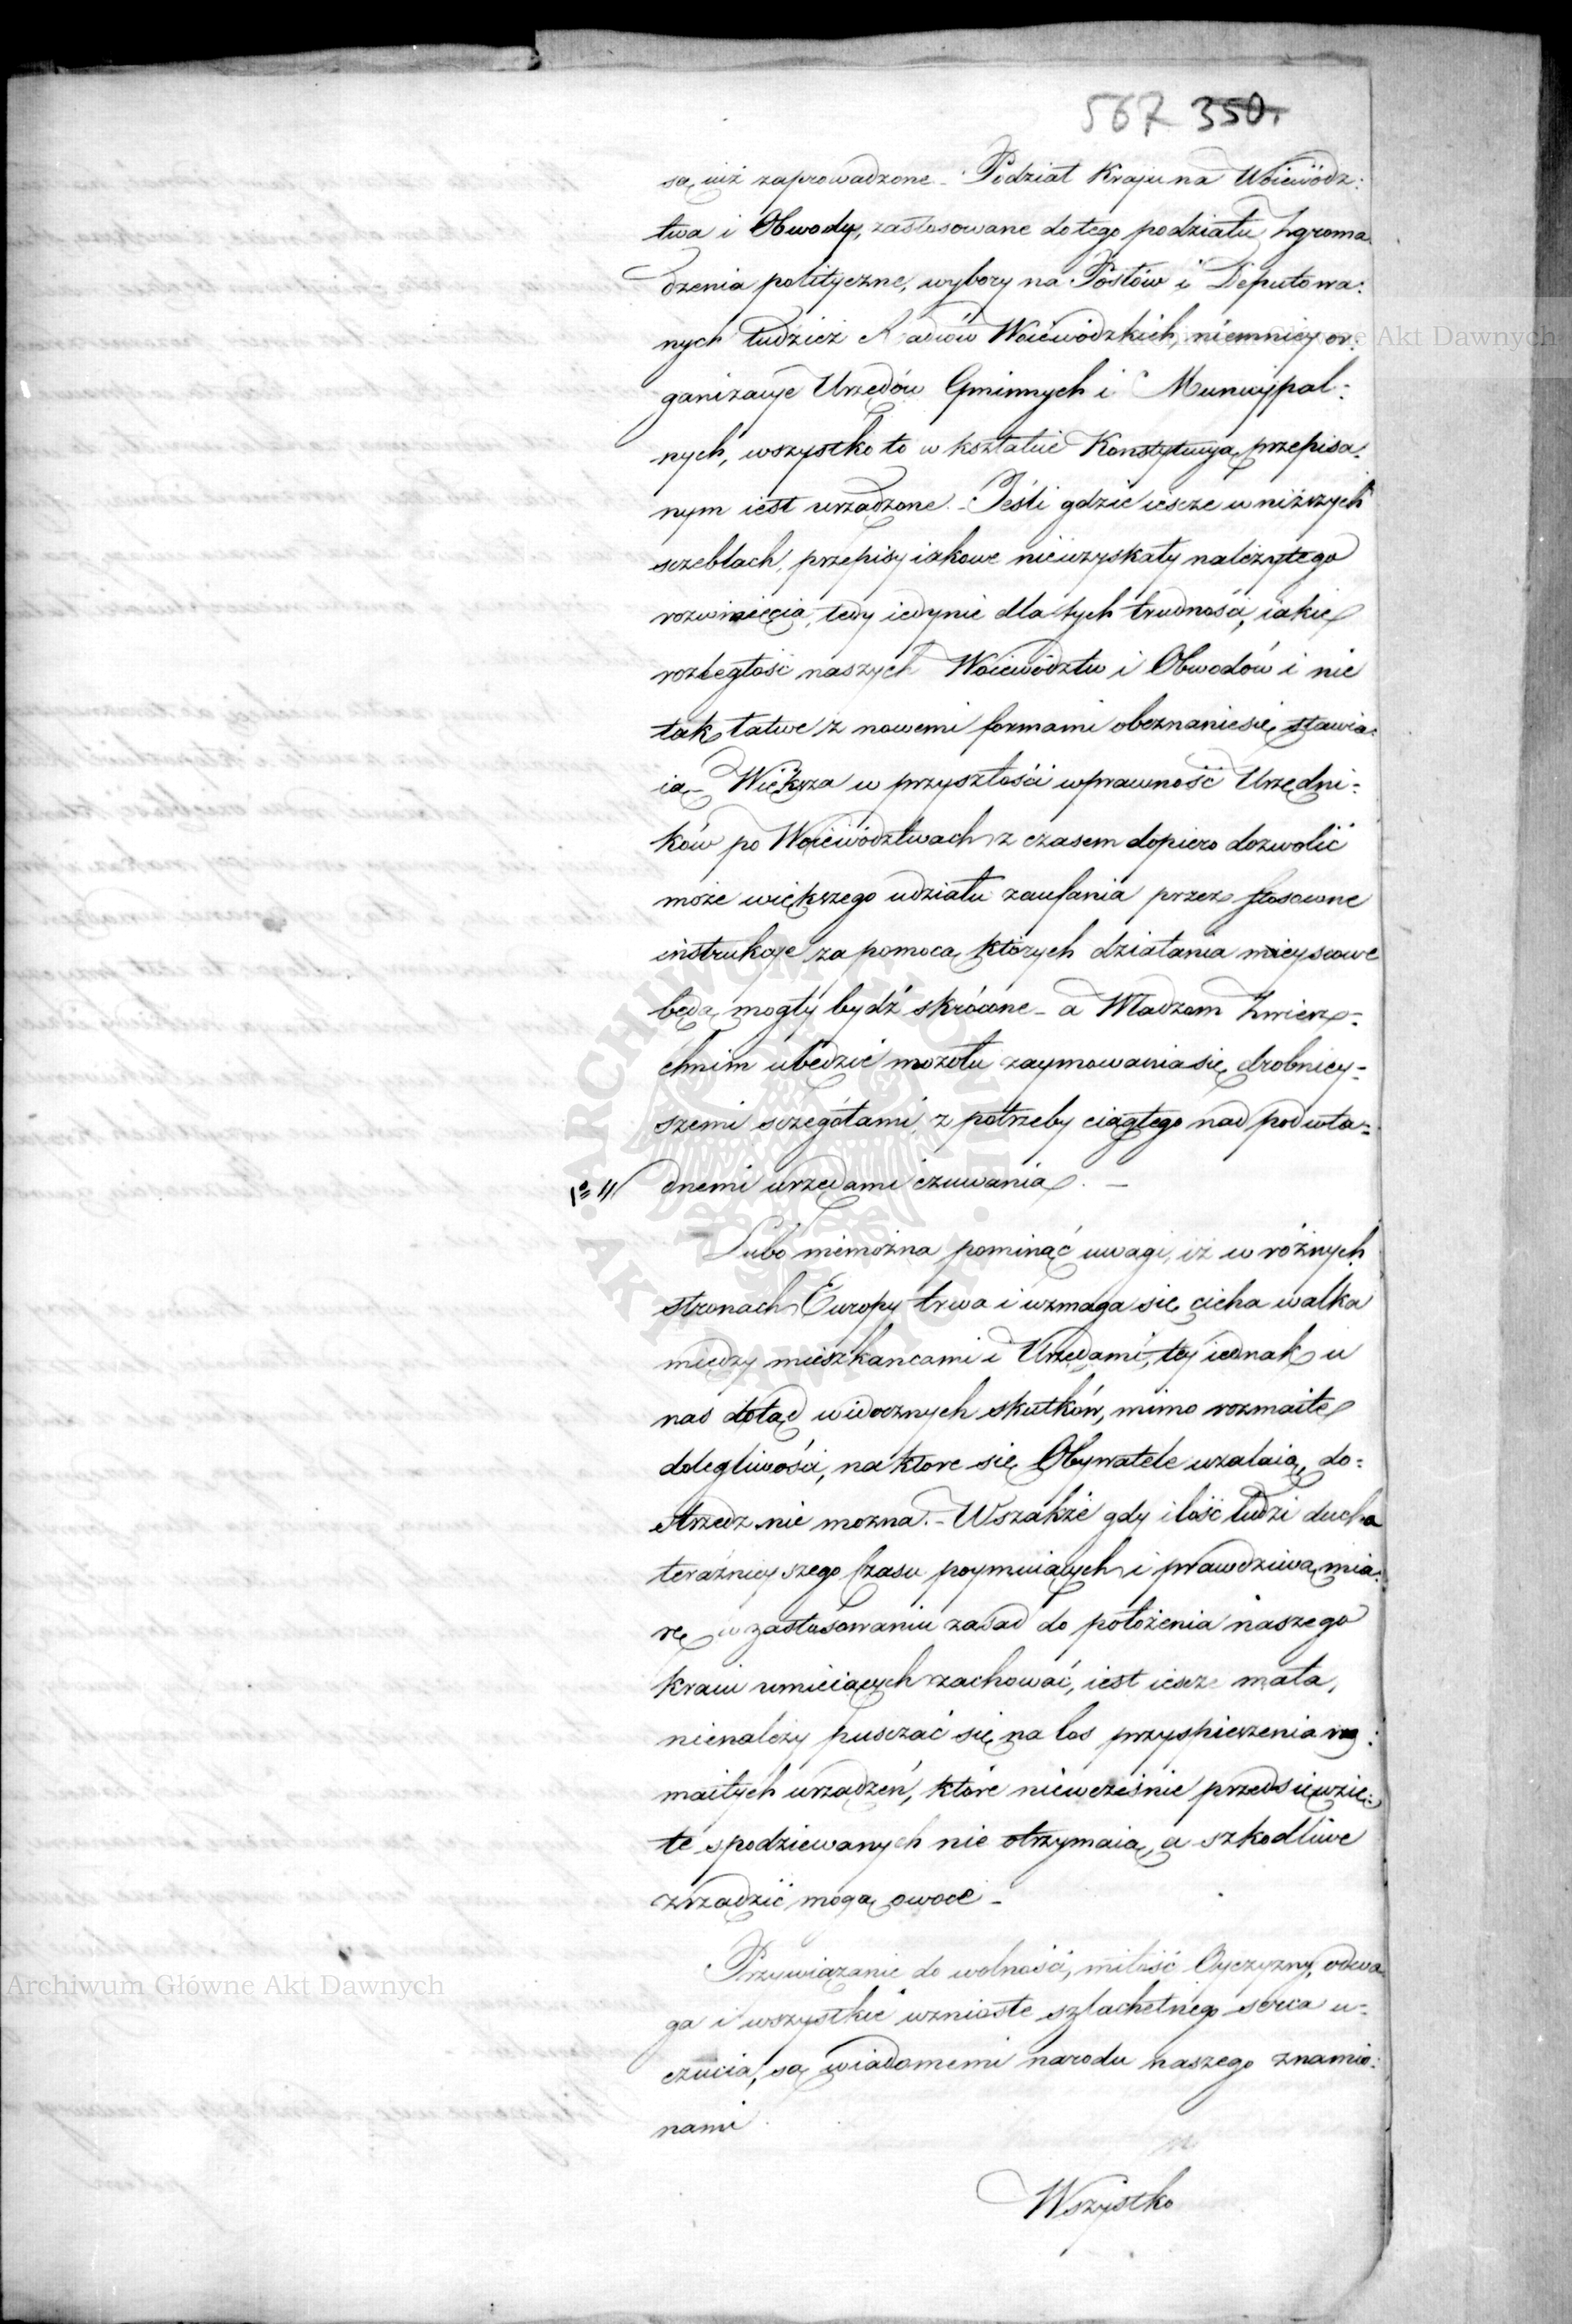 567 350.
są iuż zaprowadzone – Podział Kraju na Woiewódz:
twa i Obwody, zastosowane do tego podziału Zgroma
dzenia polityczne, wybory na Posłów i Deputowa:
nych tudzież Radców Woiewódzkich, niemniey or:
ganizacye Urzędów Gminnych i Municypal:
nych, wszystko to w kształcie Konstytucyą przepisa:
nym iest urządzone. – Jeśli gdzie iescze w niższych
sczeblach, przepisy iakowe nieuzyskały należytego
rozwinięcia, tedy iedynie dla tych trudności, iakie
rozległość naszych Woiewództw i Obwodów i nie
tak łatwe z nowemi formami obeznanie się stawia:
ią – Większa w przyszłości wprawność Urzędni:
ków po Woiewództwach z czasem dopiero dozwolić
może większego udziału zaufania przez stosowne
instrukcye za pomocą których działania mieyscowe
będą mogły bydź skrócone – a Władzom Zwierz:
chnim ubędzie mozołu zaymowania się drobniey:
szemi sczegółami, z potrzeby ciągłego nad podwła:
dnemi urzędami czuwania. –
Lubo niemożna pominąć uwagi, iż w różnych
stronach Europy trwa i wzmaga się cicha walka
między mieszkancami i Urzędami, tey iednak u
nas dotąd widocznych skutków, mimo rozmaite
dolegliwości, na ktore się Obywatele uzalaią, do:
strzedz nie mozna. – Wszakże gdy ilość ludzi ducha
teraźnieyszego Czasu poymuiących i prawdziwą mia:
rę w zastosowaniu zasad do położenia naszego
kraiu umieiących zachować, iest iescze mała,
nienależy pusczać się na los przyspieszenia roz:
maitych urządzeń, które niewcześnie przedsięwzię:
te spodziewanych nie otrzymaią, a szkodliwe
zrządzić mogą owoce –
Przywiązanie do wolności, miłość Oyczyzny, odwa
ga i wszystkie wzniosłe szlachetnego serca u:
czucia, są wiadomemi narodu naszego znamio:
nami
Wszystko
Archiwum Główne Akt Dawnych
Archiwum Główne Akt Dawnych